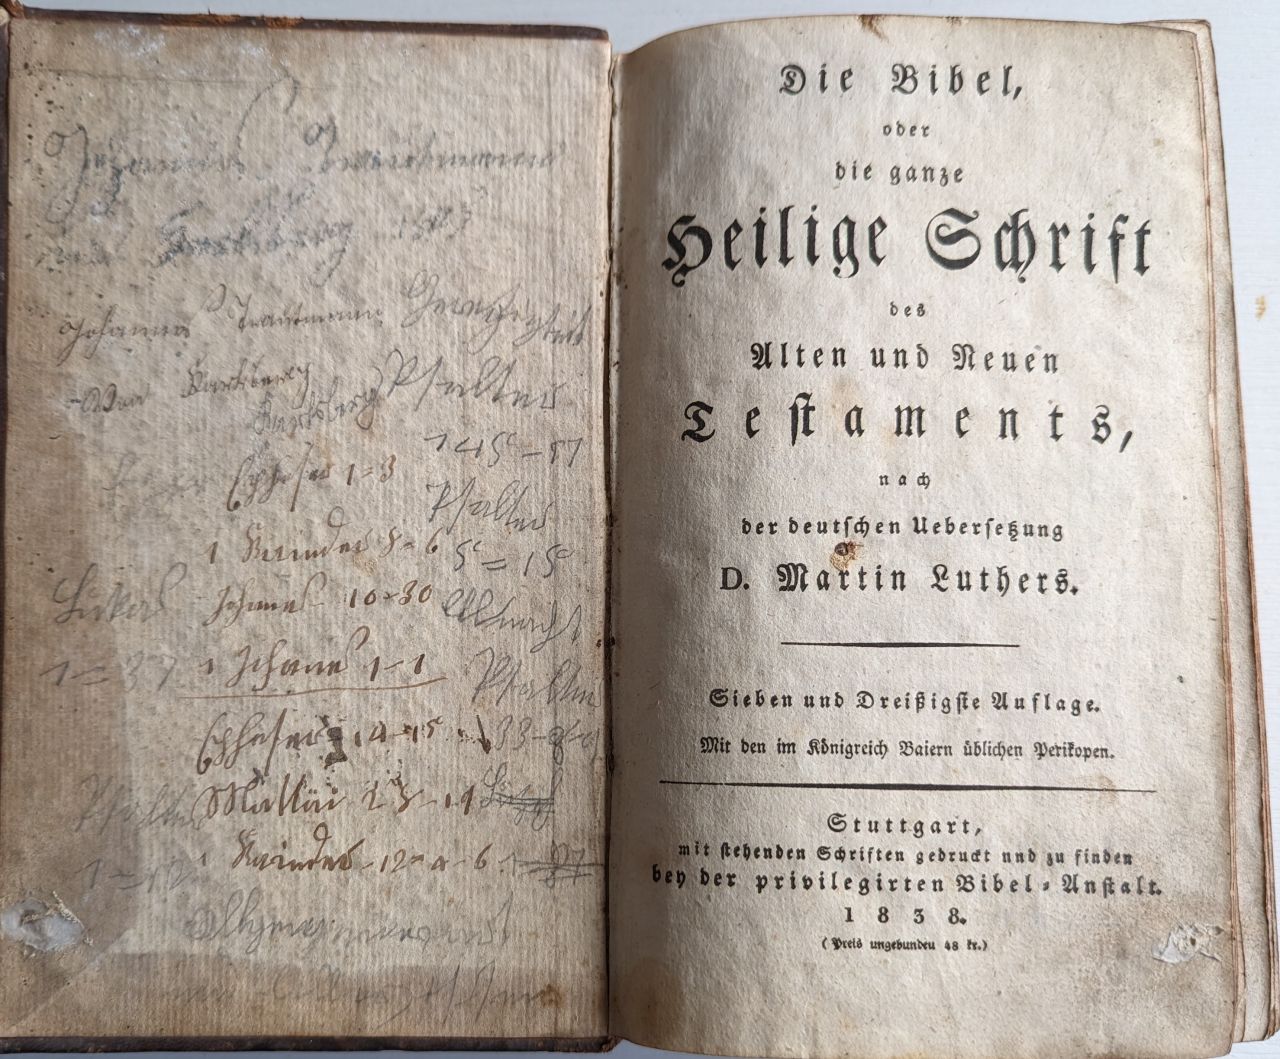 Johannes Trautmann
Johannes Trautmann
Gerechtigkeit
Psalter
145 = 17
Epheser 1 = 3
Psalter
1 Korinder 8 = 6
5 = 15
Lukas
Johanes 10 = 30
Allmacht
1 = 37
1 Johanes 1 - 1
Psalter
Epheser 14 - 15
33
Psalter
Mattäi
Korinder 12 = 4 - 6
Allgegenwart
Die Bibel,
oder
die ganze
Heilige Schrift
des
Alten und Neuen
Testaments,
nach
der deutschen Uebersetzung
D. Martin Luthers.
Sieben und Dreißigste Auflage.
Mit den im Königreich Baiern üblichen Perikopen.
Stuttgart,
mit stehenden Schriften gedruckt und zu finden
bey der privilegirten Bibel-Anstalt.
1838.
(Preis ungebunden 48 kr.)